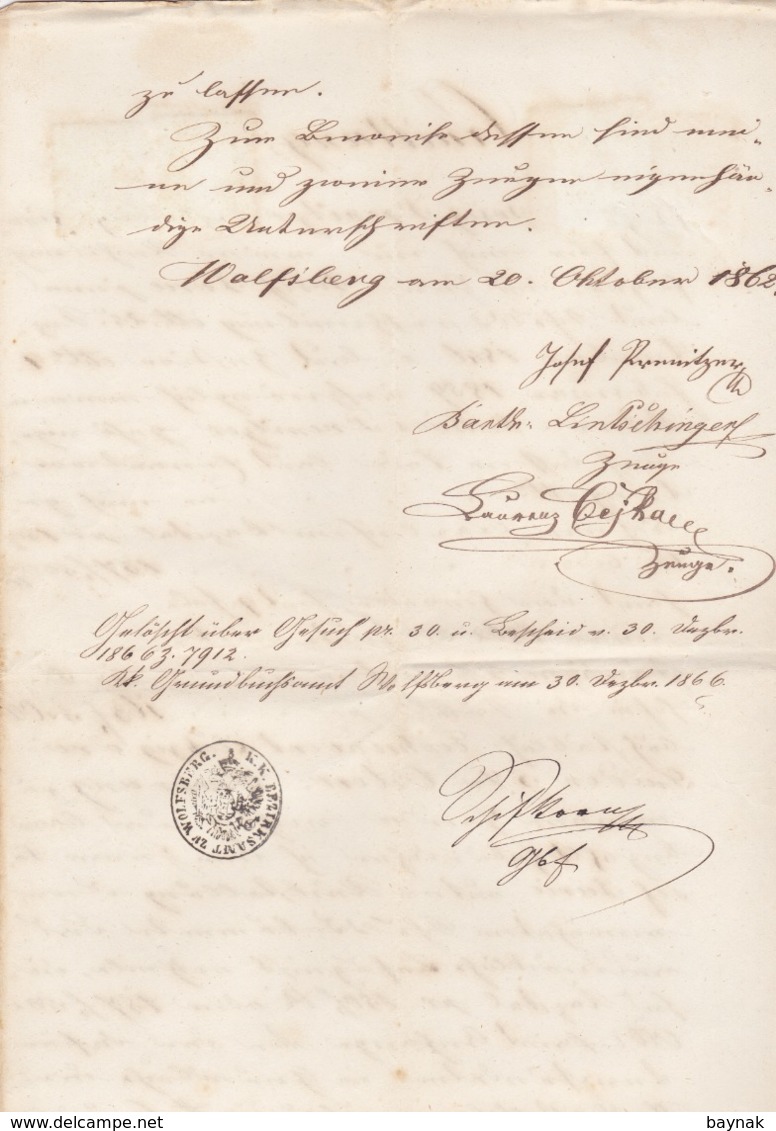 zu lassen.
Zum Beweise dessen sind mei-
ne und zweier Zeugen eigenhän-
dige Unterschriften.
Wolfsberg am 20. Oktober 1862.
Josef Premitzer
Barth: Lintschinger
Zeuge
Laurenz Cejka
Zeuge.
Gelöscht über Gesuch pr. 30. u. Bescheid v. 30. Dezbr.
1866 Z. 7912.
KK. Grundbuchsamt Wolfsberg am 30. Dezbr. 1866.
K.K. BEZIRKSAMT ZU WOLFSBERG.
Schifkorn
Gbf
delcampe.com
baynak